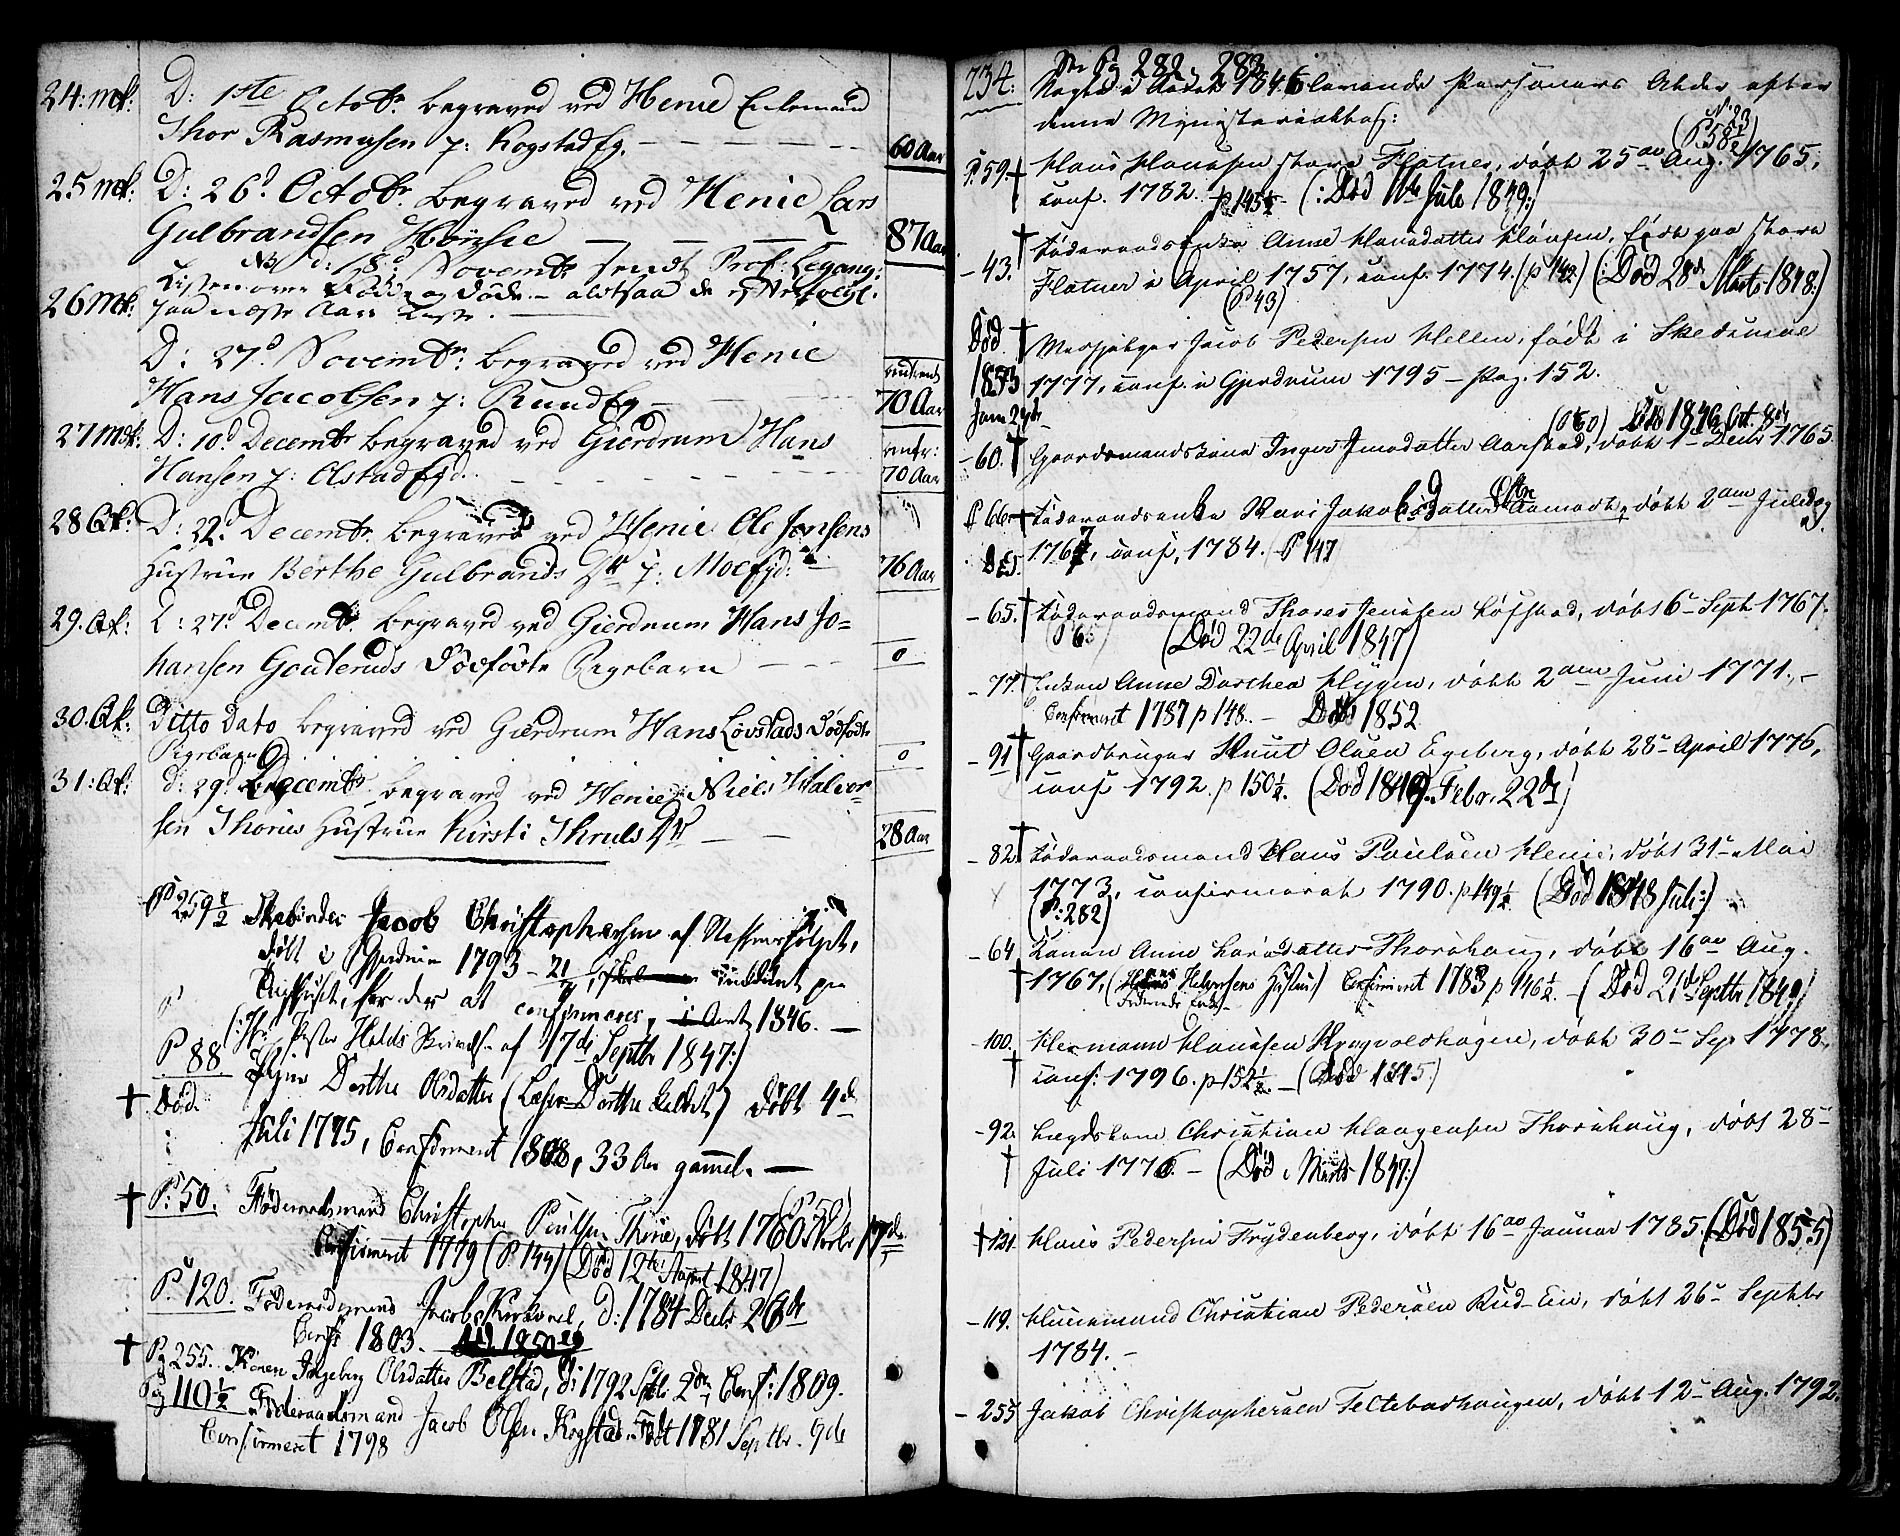 24: mk: D: 1ste Octobr begraved ved Henie Enkemand
Thor Rasmusen p: Kogstad Eg. 60 Aar
25 mk: D: 26d Octobr begraved ved Henie Lars
Gulbrandsen Höysie 87 Aar
NB d: 18d Novembr sendt Prof:
Listen over Födde og Döde
26 Mk: paa næste Aars Liste.
D: 27d Novembr begraved ved Henie
Hans Jacobsen p: Rund Eg 70 Aar
27 Mk: D: 10d Decembr begraved ved Gierdrum Hans
Hansen p: Olstad Eyd. 70 Aar
28 Qk: D: 22d Decembr begraved ved Henie Ole Jensens
Hustrue Berthe Gulbrands Dtr p: Moe Eyd: 76 Aar
29. Qk: D: 27d Decembr begraved ved Gierdrum Hans Jo=
hansen Gouteruds Dödfödte Pigebarn 0
30. Qk: Ditto Dato begraved ved Gierdrum Hans Lövstads Dödfödte
Pigebarn 0
31: Qk: d: 29d Decembr begraved ved Henie Niels Halvor=
sen Thories Hustrue Kirsti Thruls Dtr 28 Aar
259 1/2 Jacob Christophersen af
döbt i Gjerdrum 1793 - 21/
for der at confirmeres, 1846.
(: Holds Skrivelse af 17de Septbr 1847:)
P. 88. Pigen Dorthe Olsdatter (Dorthe) döbt 4de
† Död. Juli 1775, Confirmeret 1808, 33 Aar gammel.
† P: 50. Föderaadsmand Christopher Poulsen Thorie, döbt 1760 (P 50)
Confirmeret 1779 (P 144) (Död 12te August 1847)
P. 120. Föderaadsmand Jacob Kirkevold, d: 1784 Decbr 26de
Conf: 1803.
† P 255. Konen Ingeborg Olsdatter Belstad, d: 1792 2den, Conf: 1809.
Pag 110 1/2 Föderaadsmand Jacob Olsen Kogstad Födt 1781 Septbr. 9de
Confirmeret 1798
234. Pag 282, 283
Nogle i Aaret 1846 levende Personers Alder efter
denne Ministerialbog:
P. 59. † Hans Hansen store Flatner, döbt 25de Aug. 1765, (P 58 1/2)
conf. 1782. p 145 1/2 (: Död 11te Juli 1849:)
- 43. † Föderaadsenke Anne Hansdatter Hönsen, födt paa store
Flatner i April 1757, conf. 1774. (p 142.) (: Död 28de Marts 1848:)
(P 43)
Död † Jacob Pedersen Hellen, födt i Skedsmoe
1853 1777, conf. i Gjerdrum 1795 - Pag. 152.
Jan 24de
Död 1846 Oct. 8de
- 60. † Gaardmandskone Inger Jensdatter Aarstad, döbt 1te Decbr 1765.
P 66 † Föderaadsenke Kari Jakobsdatter Aamodt, döbt 2den Juledag
Död. 1767, conf. 1784. P 147
- 65. † Föderaadsmand Thores Jensen Löfstad, döbt 6te Sept. 1767.
(Död 22de April 1847)
- 77. † Enken Anne Dorthea Klygen, döbt 2den Juni 1771.
Confirmeret 1787 p 148. - Död 1852
- 91 † Gaardbruger Knut Olsen Egeberg, döbt 28de April 1776,
conf 1792. p 150 1/2. (Död 1849. Febr. 22de)
- 82 † Föderaadsmand Hans Poulsen Henie, döbt 31te Mai
1773, confirmeret 1790. p 149 1/2 (Död 1848 Juli:)
(P: 282)
- 64 Konen Anne Larsdatter Thornhaug, döbt 16de Aug.
† 1767, (Halvorsens Hustru) Confirmeret 1783 p 146 1/2. - (Död 21de Septbr 1849)
- 100. Hermann Hansen Kragvoldshagen, döbt 30te Sep 1778,
† conf: 1796. p 152 1/2 - (Död 1845)
- 92. Lægdslem Christian Haagensen Thornhaug, döbt 28de
† Juli 1776. - (Död i Marts 1847:)
† 121 Hans Pedersen Frydenberg, döbt 16de Januar 1785. (Död 1855)
- 119. Huusmand Christian Pedersen Rud-Eie, döbt 26de Septbr
1784. -
- 255 Jakob Christophersen Feltebadhaugen, döbt 12te Aug. 1792.